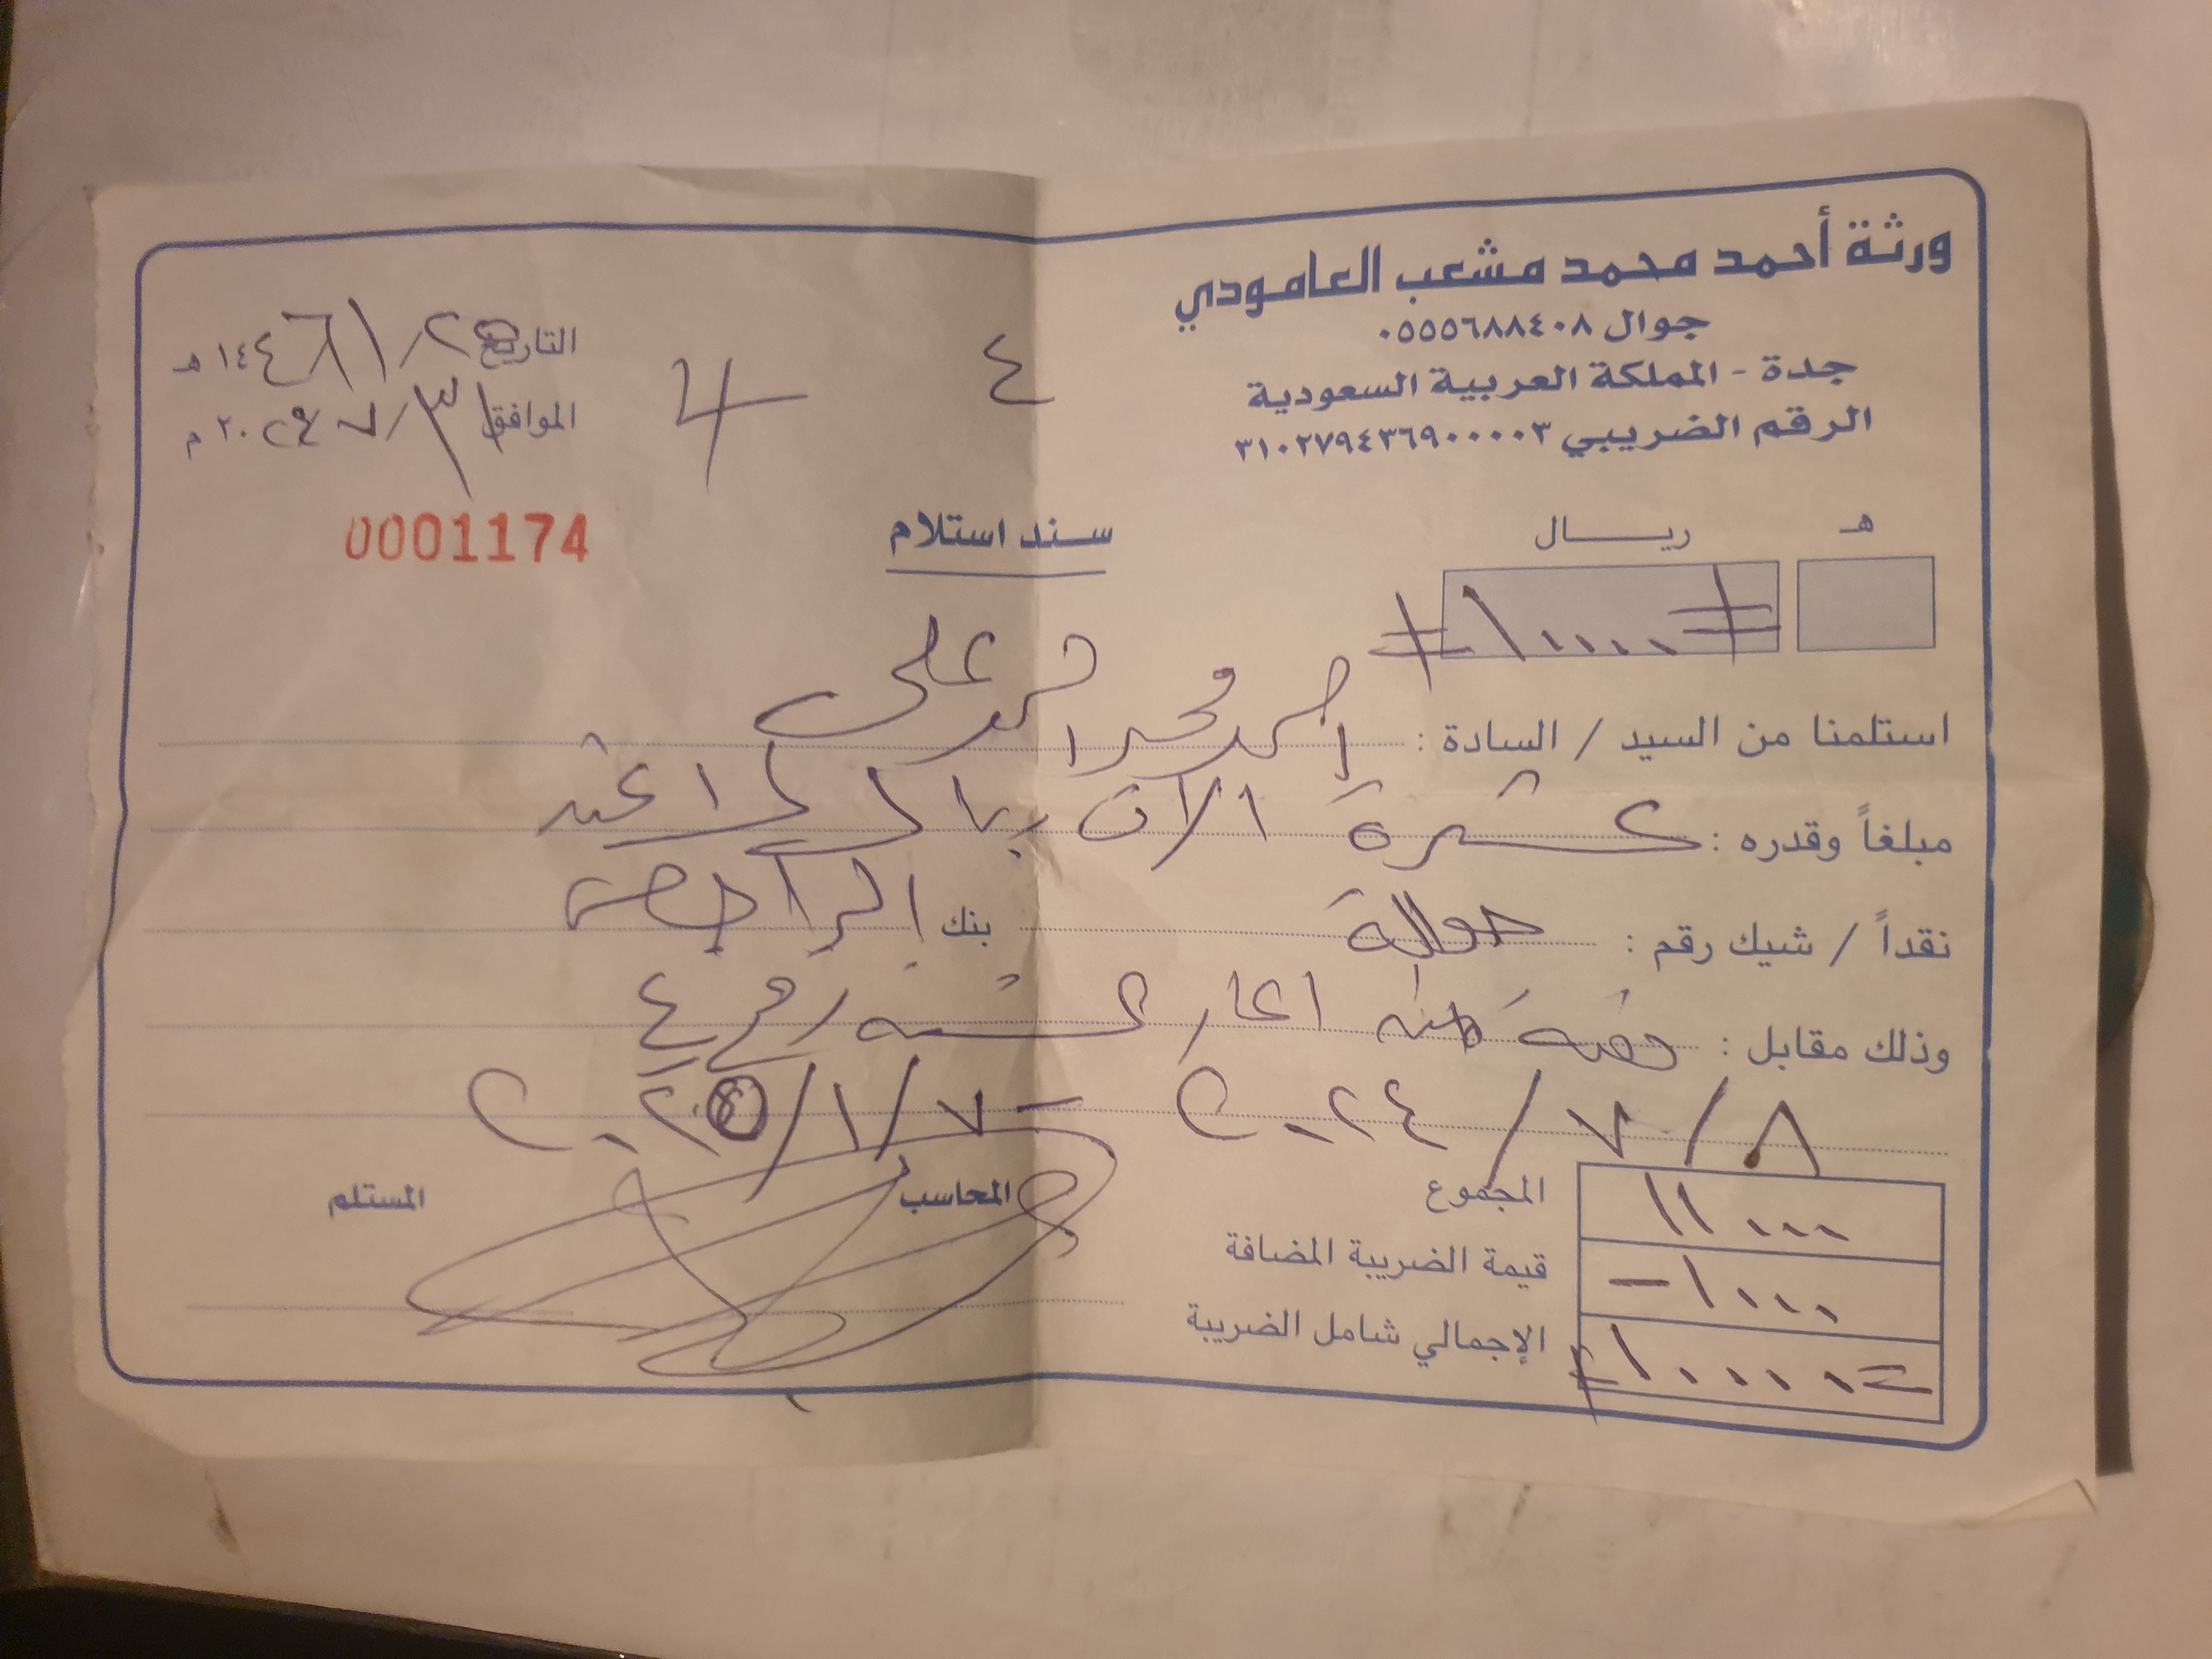 ورثة أحمد محمد مشعب العامودي
جوال ٠٥٥٥٦٨٨٤٠٨
جدة - المملكة العربية السعودية
الرقم الضريبي ٣١٠٢٧٩٤٣٦٩٠٠٠٠٣
٤
4
التاريخ / ١ / ١٤٤٦ هـ
الموافق ٣١ / ٧ / ٢٠٢٤ م
0001174
سند استلام
هـ ريال
# ١٠٠٠٠ #
استلمنا من السيد / السادة : احمد محمد احمد علي
مبلغاً وقدره : عشرة الاف ريال لاغير
نقداً / شيك رقم : حوالة بنك الراجحي
وذلك مقابل : دفعة من ايجار شقة رقم ٤
٨ / ٧ / ٢٠٢٤ - ٧ / ١ /
المجموع ١١٠٠٠
قيمة الضريبة المضافة - ١٠٠٠
الإجمالي شامل الضريبة = ١٠٠٠٠ #
المحاسب المستلم